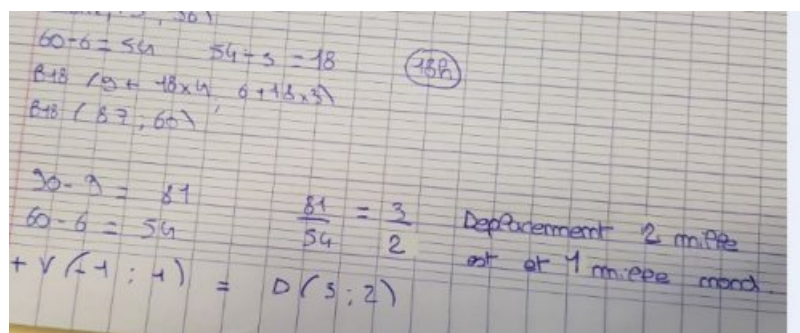 60-6 = 54 54 ÷ 3 = 18 18h
B18 (9 + 18x4, 6+18x3)
B18 (87, 60)
90-9 = 81
60-6 = 54
81/54 = 3/2
Deplacement 2 mille
est et 1 mielle
+ V(-1 ; 1) = D(3 ; 2)